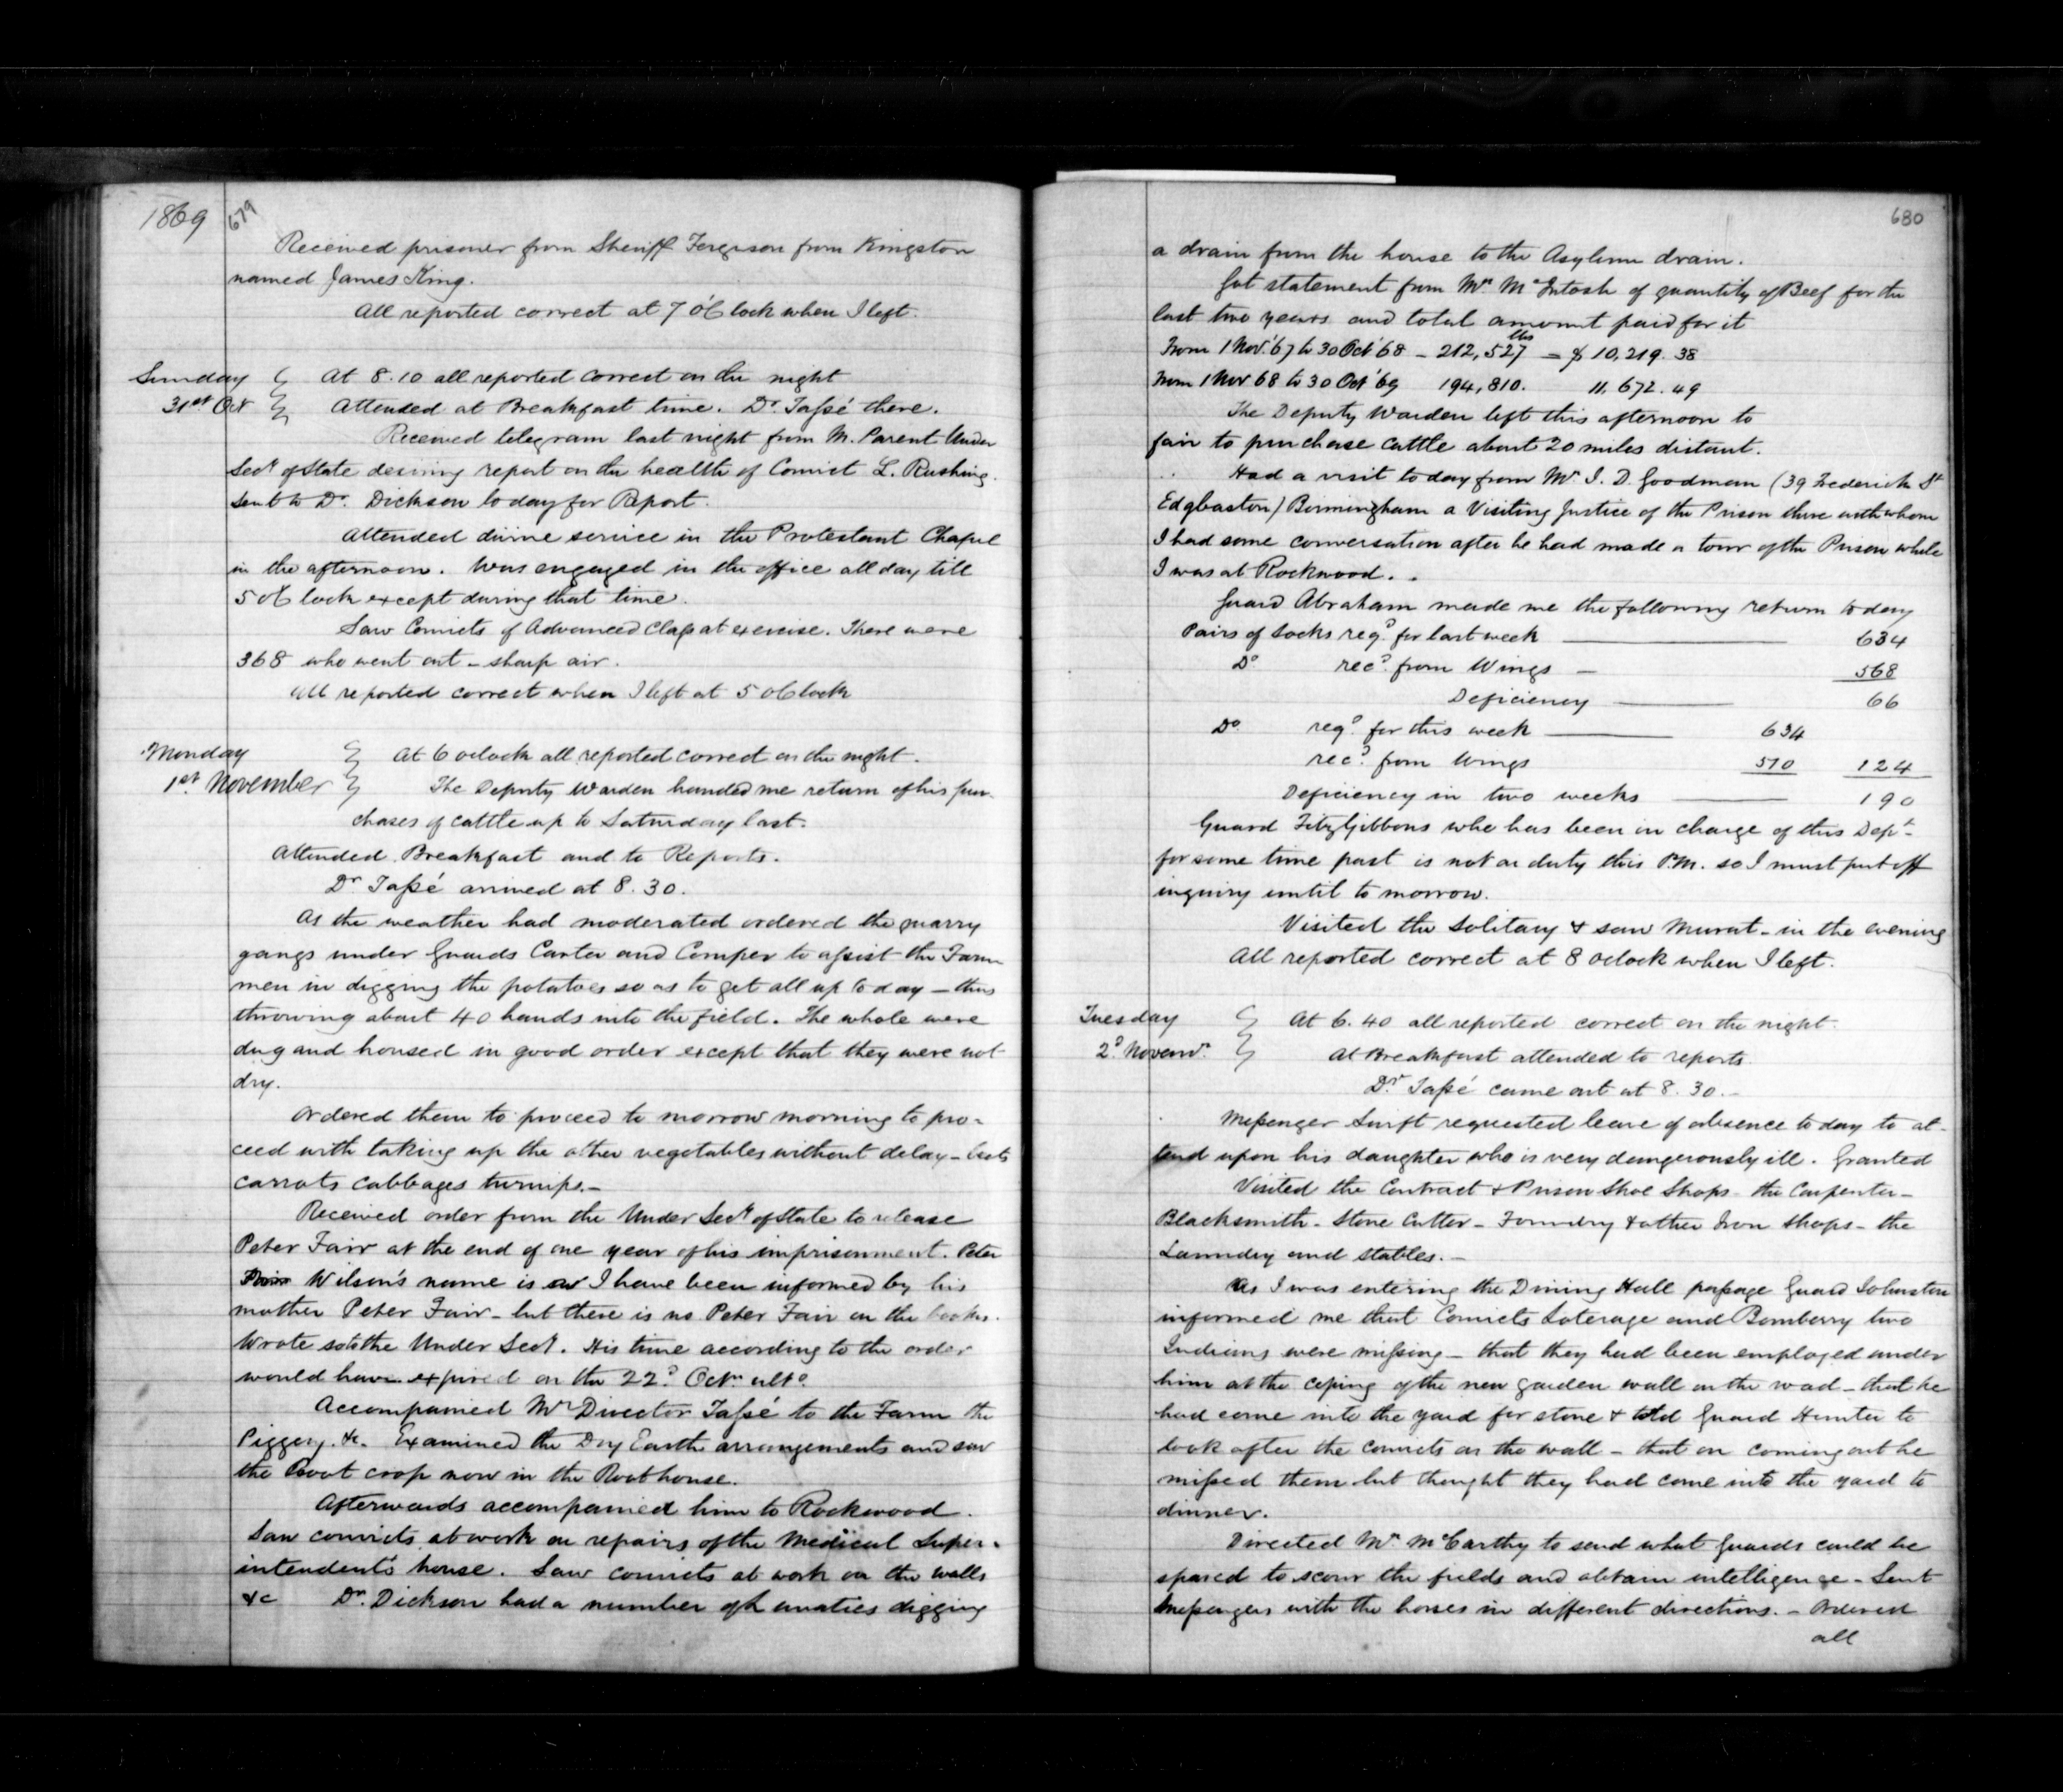 1869
679
Received prisoner from Sheriff Ferguson from Kingston
named James King.
All reported correct at 7 o'Clock when I left.
Sunday At 8.10 all reported correct on the night
31st Oct Attended at Breakfast time. Dr. Tassé there.
Received telegram last night from M. Parent Under
Secy of State desiring report on the health of Convict L. Rushing.
Sent to Dr. Dickson to day for Report.
Attended divine service in the Protestant Chapel
in the afternoon. Was engaged in the office all day till
5 o'Clock except during that time.
Saw Convicts of Advanced Class at exercise. There were
368 who went out - sharp air.
All reported correct when I left at 5 o'Clock
Monday At 6 oclock all reported correct on the night.
1st November The Deputy Warden handed me return of his pur-
chases of cattle up to Saturday last.
Attended Breakfast and to Reports.
Dr. Tassé arrived at 8.30.
As the weather had moderated ordered the quarry
gangs under Guards Carter and Comper to assist the Farm
men in digging the potatoes so as to get all up to day - thus
throwing about 40 hands into the field. The whole were
dug and housed in good order except that they were not
dry.
Ordered them to proceed to morrow morning to pro-
ceed with taking up the other vegetables without delay - beets
carrots cabbages turnips. -
Received order from the Under Secy of State to release
Peter Fair at the end of one year of his imprisonment. Peter
Wilson's name is as I have been informed by his
mother Peter Fair - but there is no Peter Fair on the books.
Wrote so to the Under Secy. His time according to the order
would have expired on the 22d Octr. ulto.
Accompanied Mr Director Tassé to the Farm the
Piggery &c. Examined the Dry Earth arrangements and saw
the Root crop now in the Root house.
Afterwards accompanied him to Rockwood.
Saw convicts at work on repairs of the Medical Super-
intendent's house. Saw convicts at work on the walls
&c Dr. Dickson had a number of Lunatics digging
680
a drain from the house to the Asylum drain.
Got statement from Mr. McIntosh of quantity of Beef for the
last two years and total amount paid for it
From 1 Nov. '67 to 30 Oct '68 - 212,527 lbs = $ 10,219.38
From 1 Nov 68 to 30 Oct '69 194,810. 11,672.49
The Deputy Warden left this afternoon to
fair to purchase cattle about 20 miles distant.
Had a visit to day from Mr. J. D. Goodman (39 Frederick St
Edgbaston) Birmingham a Visiting Justice of the Prison there with whom
I had some conversation after he had made a tour of the Prison while
I was at Rockwood.
Guard Abraham made me the following return to day
Pairs of Socks reqd. for last week 634
Do recd. from Wings - 568
Deficiency 66
Do. reqd. for this week 634
recd. from Wings 510 124
Deficiency in two weeks 190
Guard FitzGibbons who has been in charge of this Dept.
for some time past is not on duty this P.M. so I must put off
inquiry until to morrow.
Visited the Solitary & saw Murat - in the evening
All reported correct at 8 oclock when I left.
Tuesday At 6.40 all reported correct on the night.
2d. Novemr. At Breakfast attended to reports.
Dr. Tassé came out at 8.30. -
Messenger Swift requested leave of absence to day to at-
tend upon his daughter who is very dangerously ill. Granted
Visited the Contract & Prison Shoe Shops - the Carpenter -
Blacksmith - Stone Cutter - Foundry & other Iron Shops - the
Laundry and stables. -
As I was entering the Dining Hall passage Guard Johnston
informed me that Convicts Soterage and Bomberry two
Indians were missing - that they had been employed under
him at the coping of the new garden wall on the road - that he
had come into the yard for stone & told Guard Hunter to
look after the convicts on the wall - that on coming out he
missed them but thought they had come into the yard to
dinner.
Directed Mr. McCarthy to send what Guards could be
spared to scour the fields and obtain intelligence - Sent
Messengers with the horses in different directions. - Ordered
all